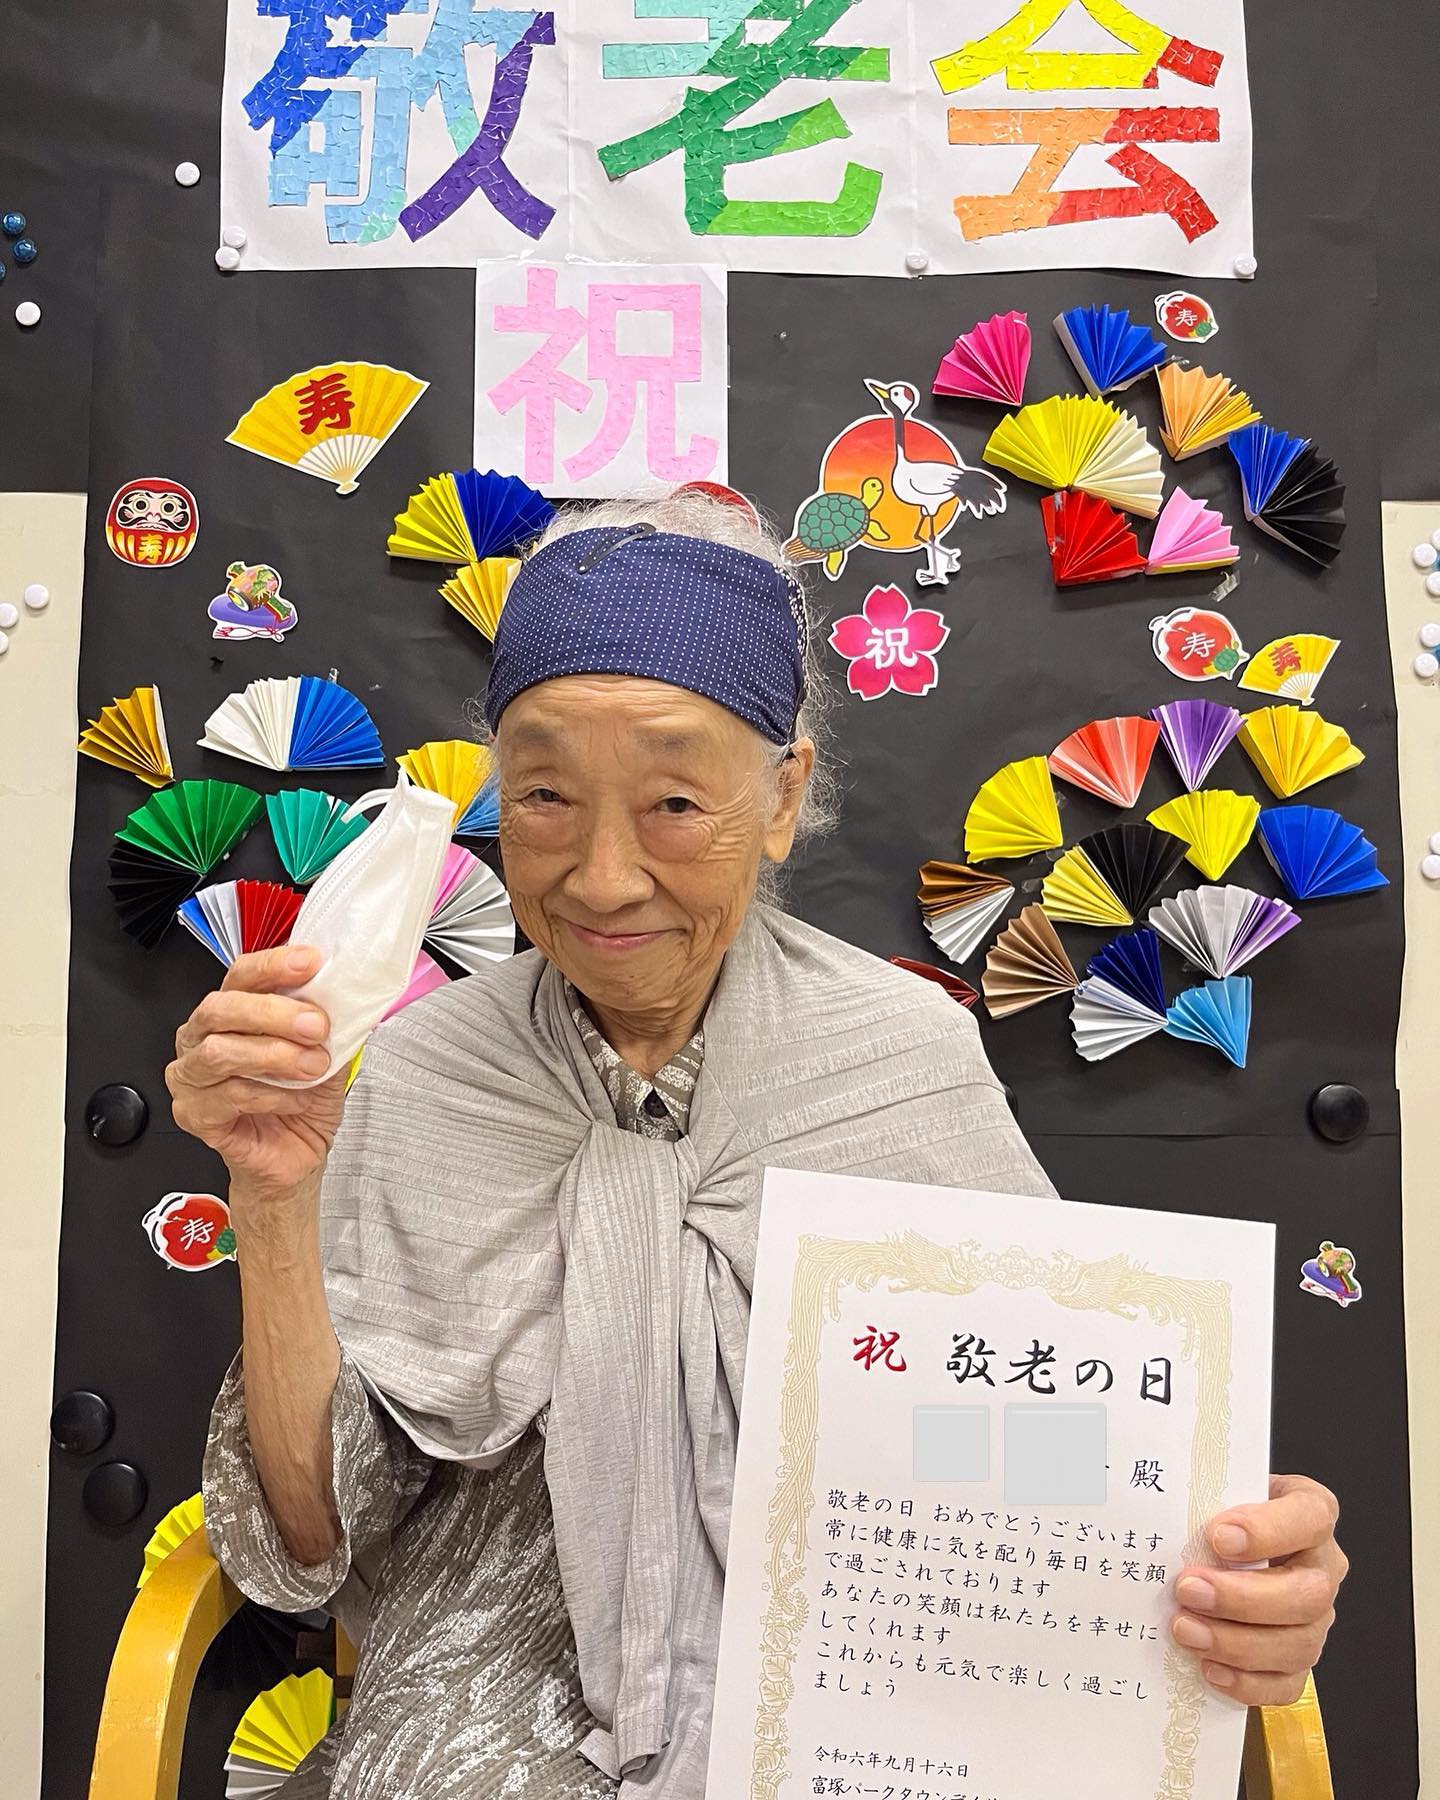 敬老会
祝
寿
寿
寿
祝
寿
寿
寿
祝 敬老の日
殿
敬老の日 おめでとうございます
常に健康に気を配り毎日を笑顔
で過ごされております
あなたの笑顔は私たちを幸せに
してくれます
これからも元気で楽しく過ごし
ましょう
令和六年九月十六日
富塚パークタウンデイ